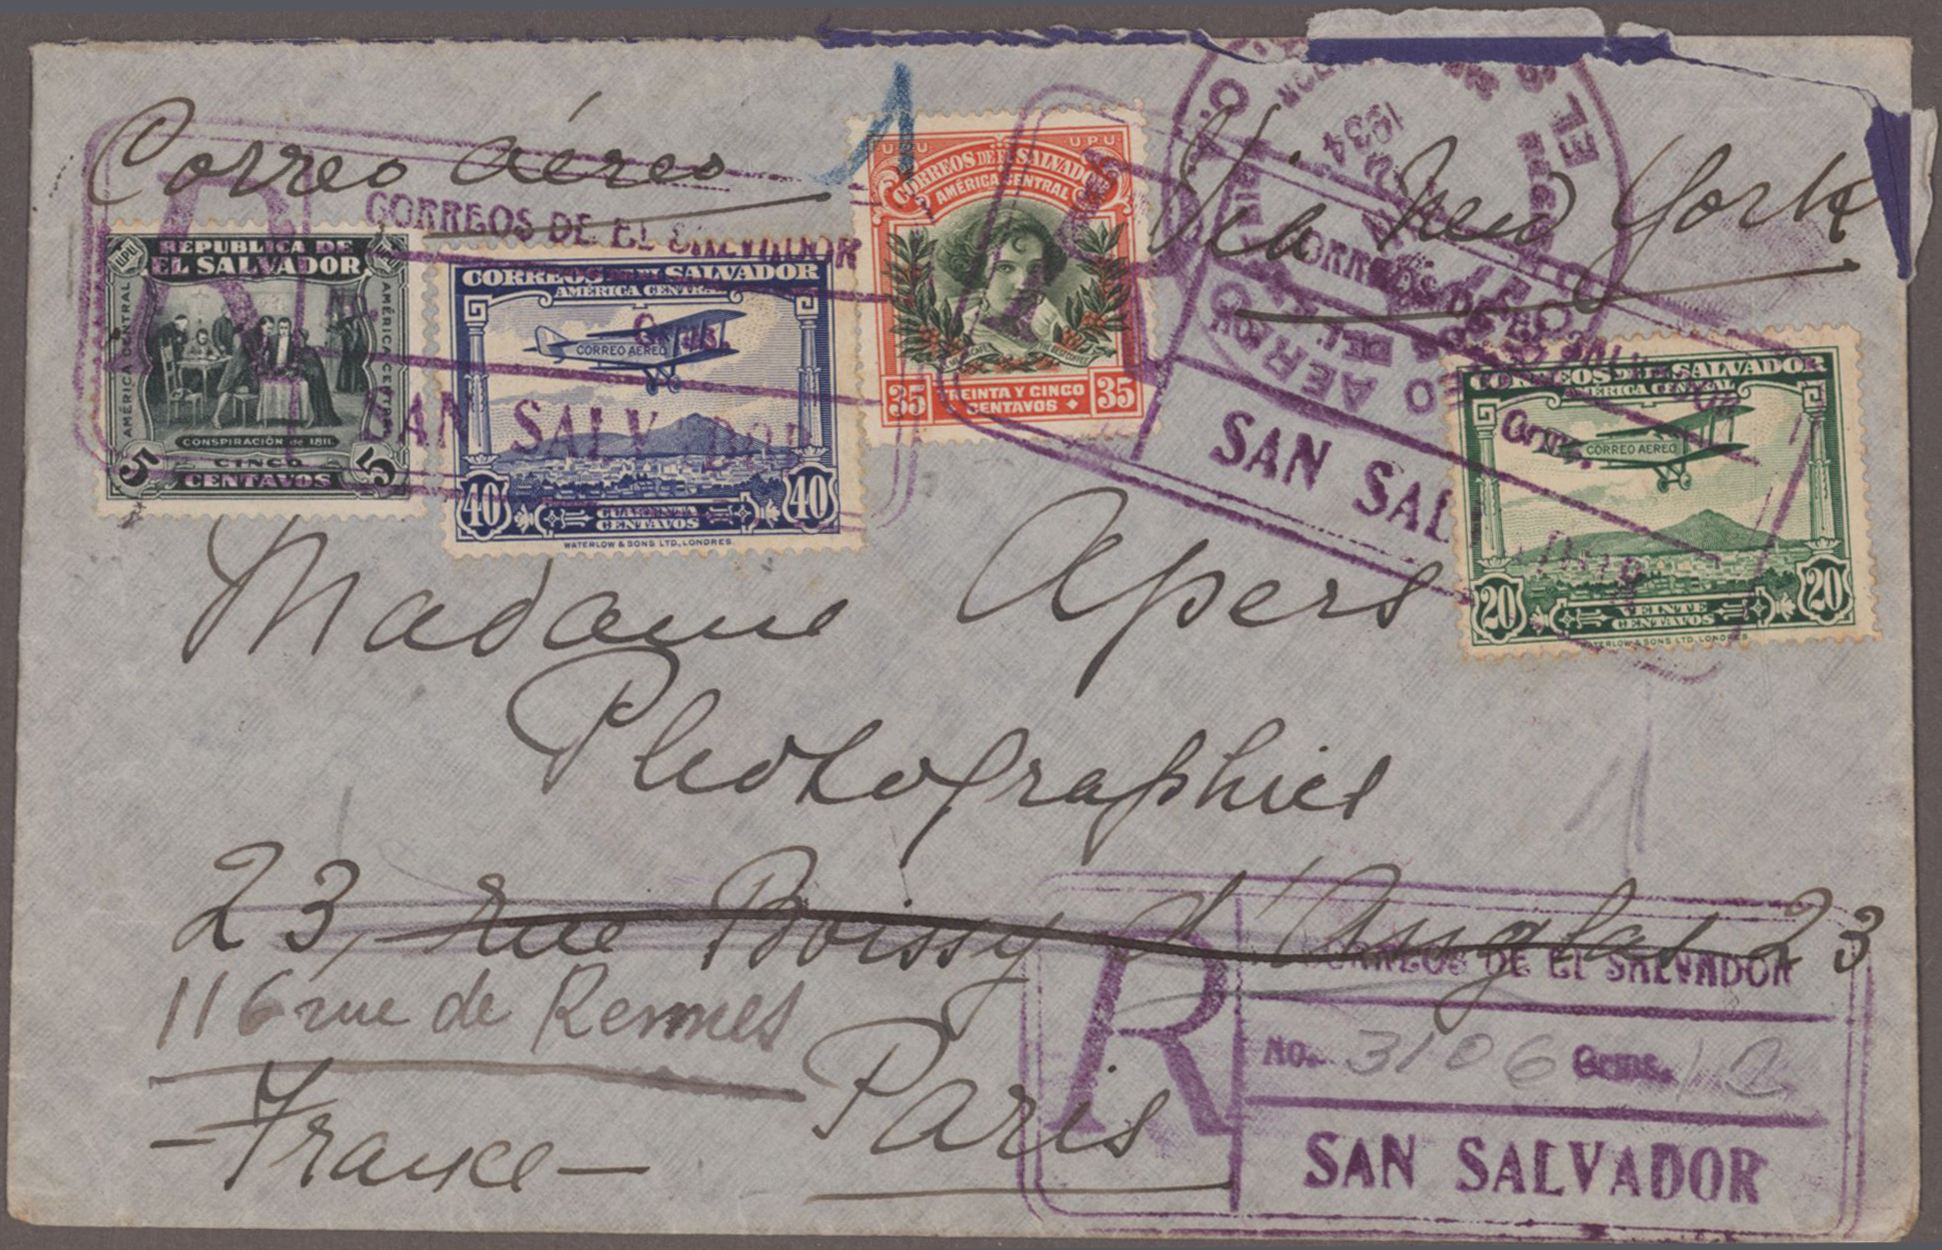 Correo aéreo
1
Via New York
UPU
REPUBLICA DE
EL SALVADOR
AMÉRICA CENTRAL
AMÉRICA CENTRAL
CONSPIRACIÓN de 1811.
5 CINCO 5
CENTAVOS
CORREOS DE EL SALVADOR
Grms.
SAN SALVADOR
CORREOS DE EL SALVADOR
AMÉRICA CENTRAL
CORREO AEREO
40 CUARENTA 40
CENTAVOS
WATERLOW & SONS LTD, LONDRES.
UPU UPU
CORREOS DE EL SALVADOR
AMÉRICA CENTRAL
35 TREINTA Y CINCO 35
CENTAVOS
R
CORREOS DE EL SALVADOR
Grms.
SAN SALVADOR
1934
CORREOS DE EL SALVADOR
AMÉRICA CENTRAL
CORREO AEREO
20 VEINTE 20
CENTAVOS
WATERLOW & SONS LTD, LONDRES
Madame Apers
Photographies
23, rue Boissy d'Anglas 23
116 rue de Rennes
Paris
- France -
R
CORREOS DE EL SALVADOR
No. 3106 Grms. 12
SAN SALVADOR